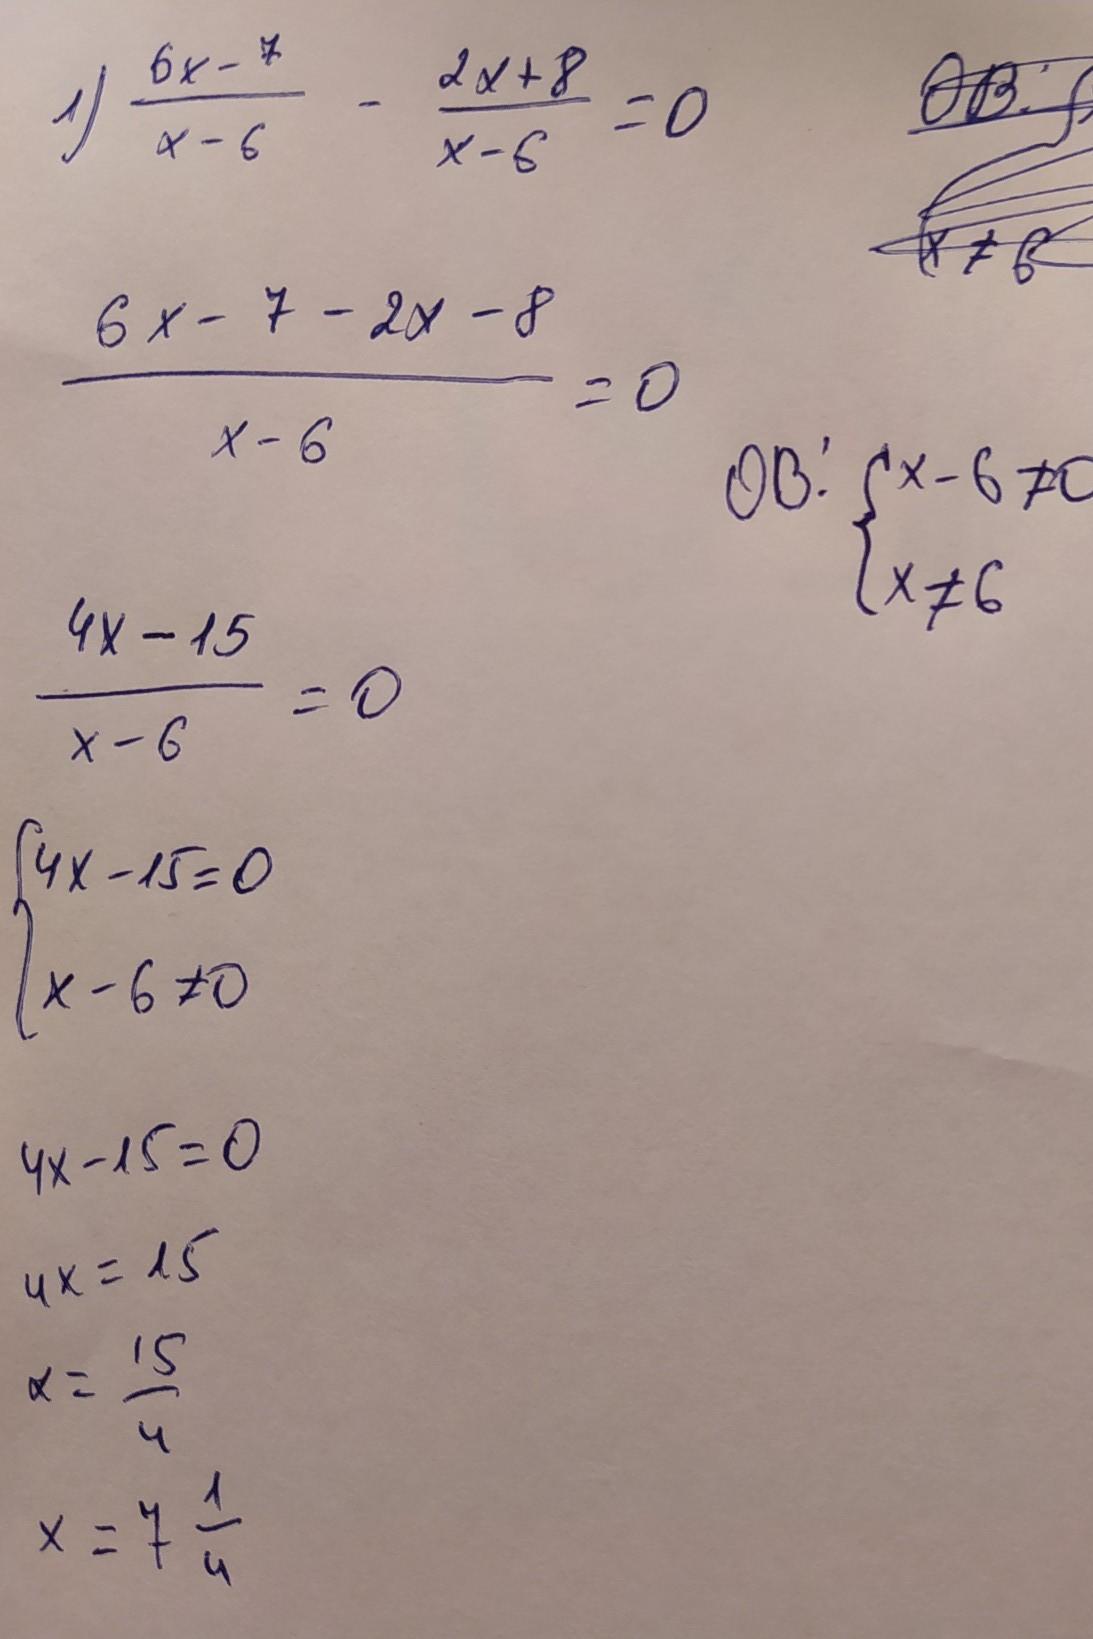 1) (6x-7)/(x-6) - (2x+8)/(x-6) = 0
OB:
x ≠ 6
(6x - 7 - 2x - 8)/(x-6) = 0
OB: { x - 6 ≠ 0
x ≠ 6
(4x - 15)/(x-6) = 0
{ 4x - 15 = 0
x - 6 ≠ 0
4x - 15 = 0
4x = 15
x = 15/4
x = 7 1/4